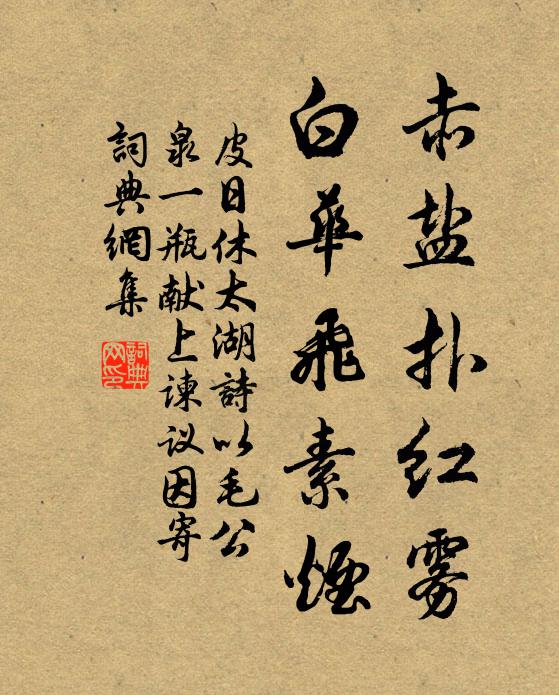 赤盐扑红雾
白华飛素煙
皮日休太湖詩以毛公
泉一瓶献上諫议因寄
詞典網集
詞典网印